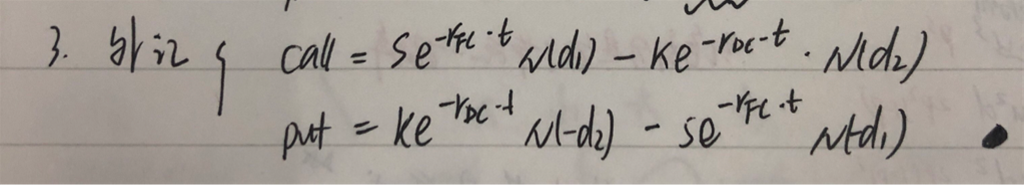 3. 外汇 { call = Se^{-r_{FC}·t} N(d₁) - Ke^{-r_{DC}·t} · N(d₂)
put = Ke^{-r_{DC}·t} N(-d₂) - Se^{-r_{FC}·t} N(-d₁)